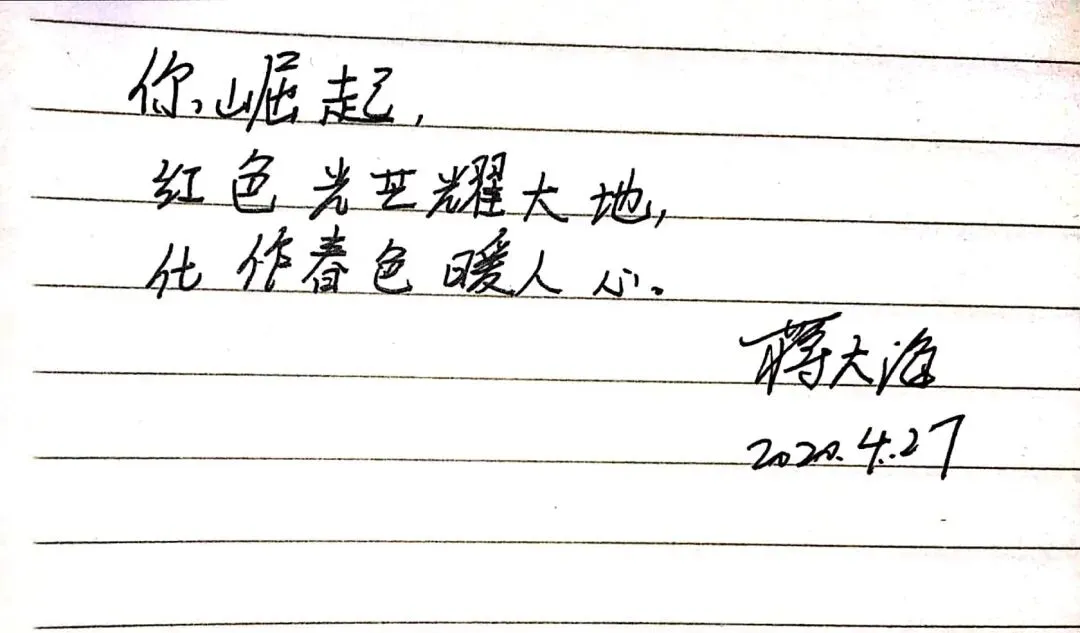 你崛起,
红色光芒耀大地,
化作春色暖人心。
蒋大海
2020.4.27